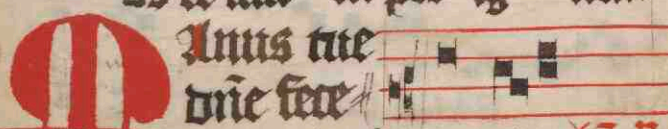 Manus tue
dn̄e fece